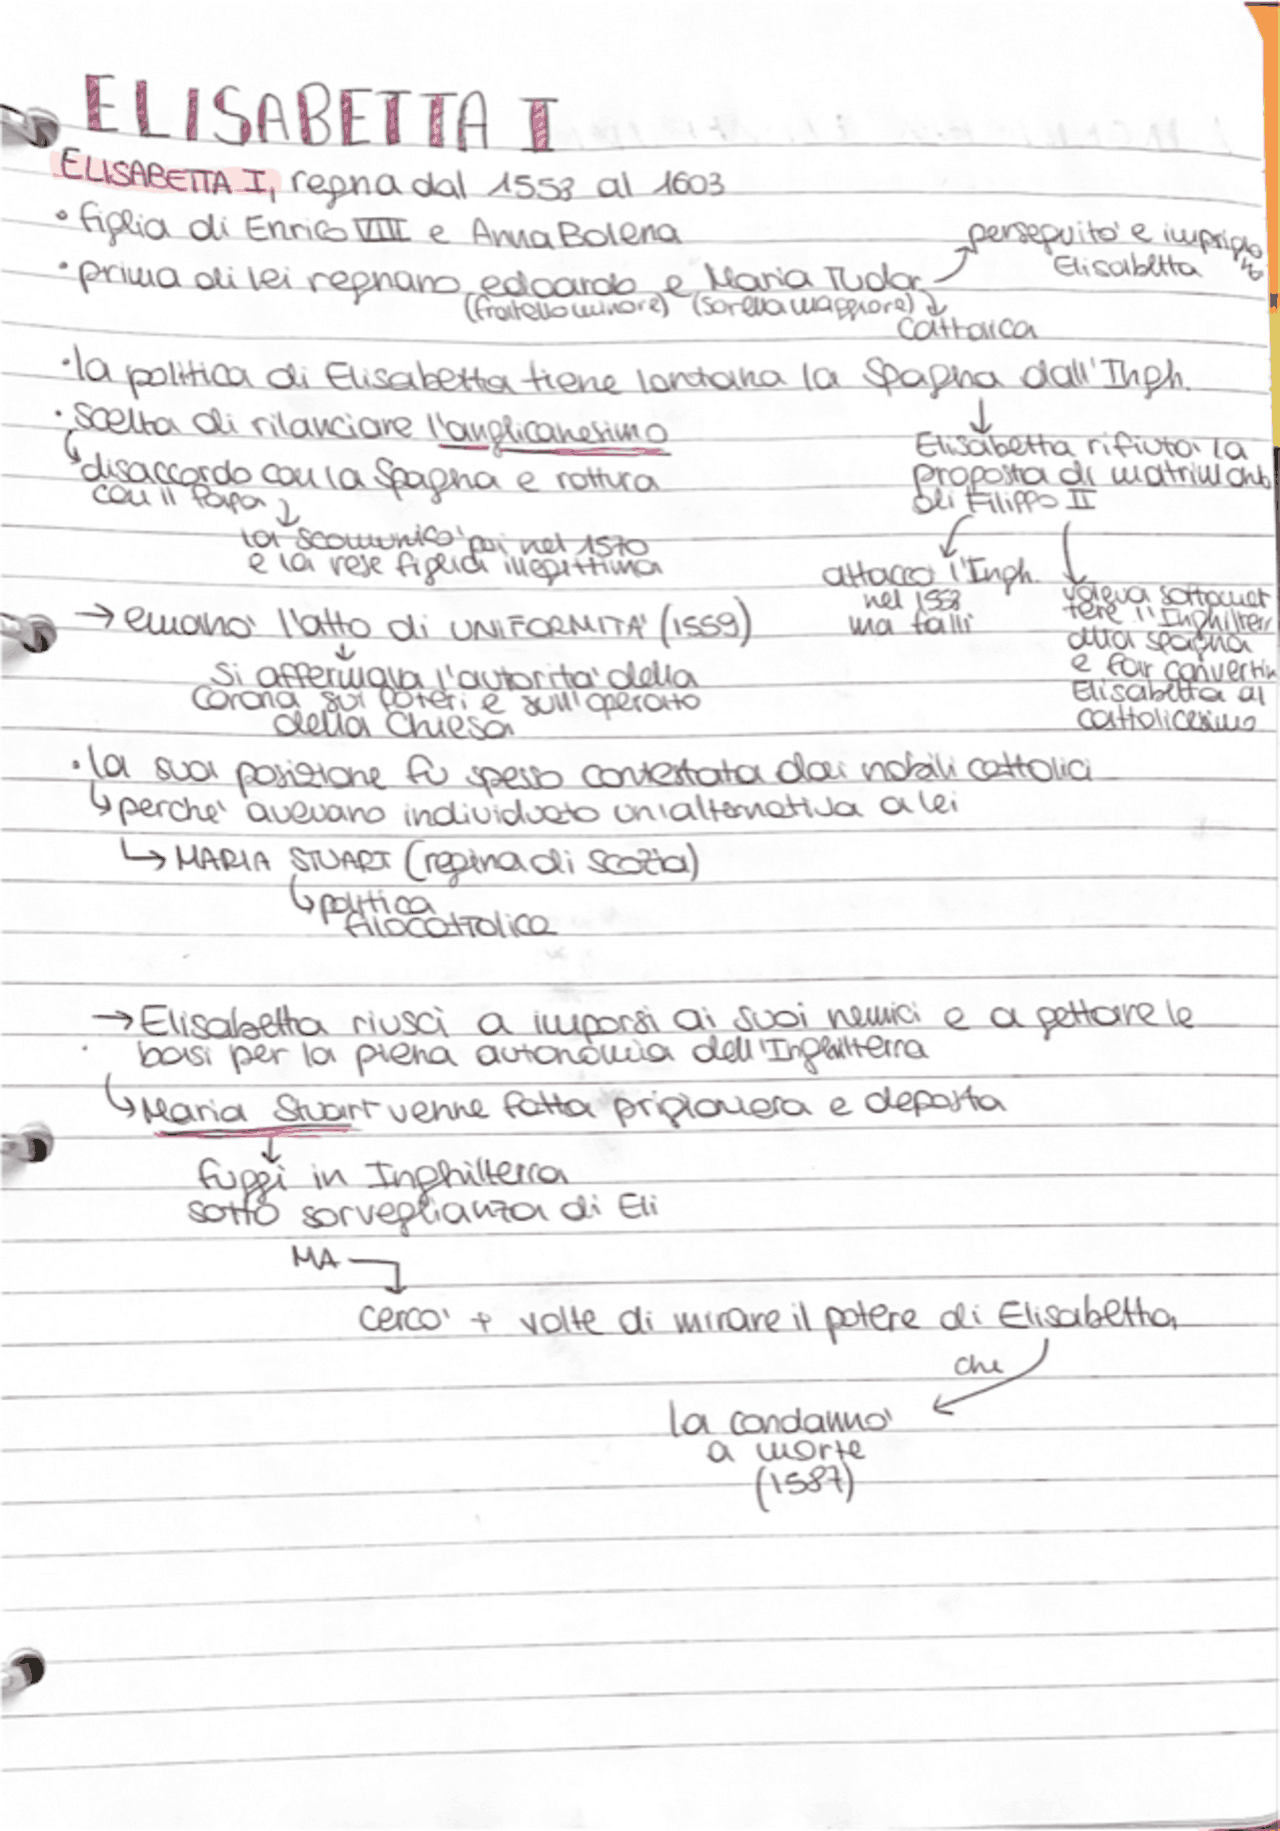 ELISABETTA I
ELISABETTA I, regna dal 1558 al 1603
• figlia di Enrico VIII e Anna Bolena
• prima di lei regnano edoardo e Maria Tudor
(fratello minore) (sorella maggiore)
perseguitò e imprigionò
Elisabetta
cattolica
• la politica di Elisabetta tiene lontana la Spagna dall'Ingh.
Elisabetta rifiuta la
proposta di matrimonio
di Filippo II
attaccò l'Ingh.
nel 1558
ma fallì
voleva sottomet
tere l'Inghilterr
alla spagna
e far convertire
Elisabetta al
cattolicesimo
• scelta di rilanciare l'anglicanesimo
disaccordo con la Spagna e rottura
con il Papa
la scomunicò poi nel 1570
e la rese figlia illegittima
→ emanò l'atto di UNIFORMITÀ (1559)
↓
Si affermava l'autorità della
corona sui poteri e sull'operato
della Chiesa
• la sua posizione fu spesso contestata dai nobili cattolici
↳ perchè avevano individuato un'alternativa a lei
↳ MARIA STUART (regina di scozia)
↳ politica
filocattolica
→ Elisabetta riuscì a imporsi ai suoi nemici e a gettare le
basi per la piena autonomia dell'Inghilterra
↳ Maria Stuart venne fatta prigioniera e deposta
↓
fuggì in Inghilterra
sotto sorveglianza di Eli
MA
cercò + volte di minare il potere di Elisabetta,
che
la condannò
a morte
(1587)